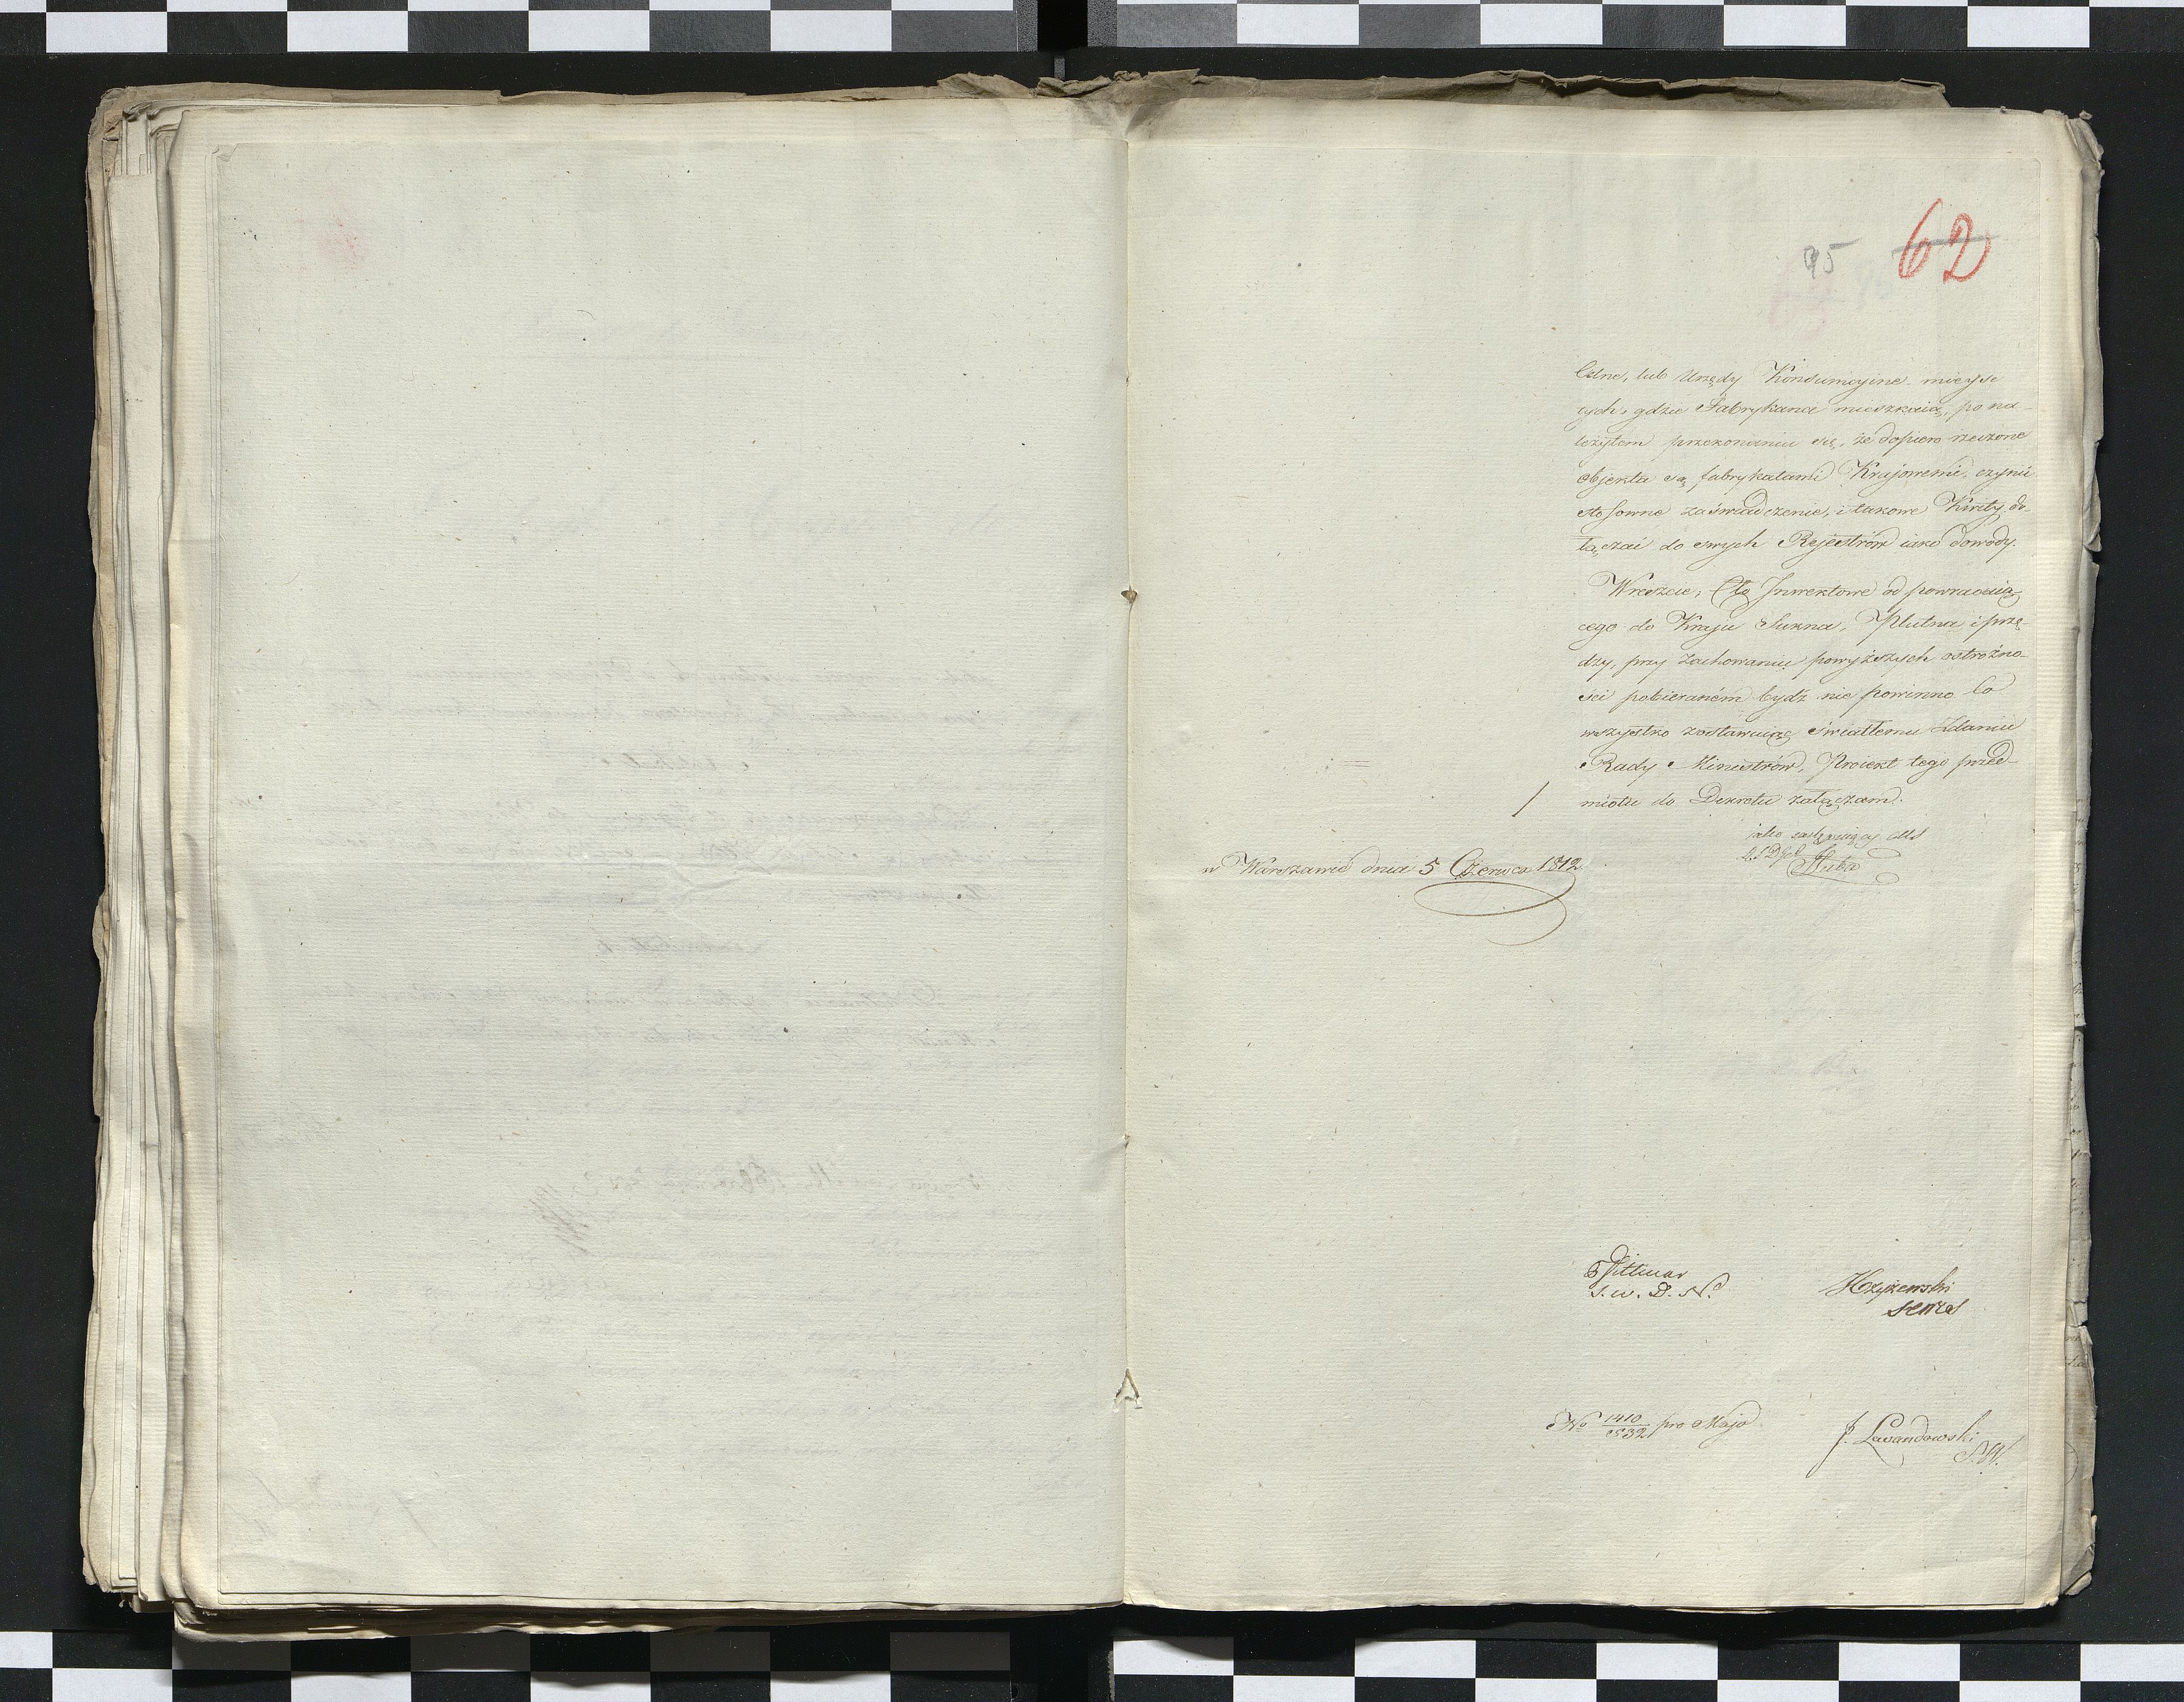 95 62
Celne, lub Urzędy Konsumcyjne mieysc
tych, gdzie Fabrykanci mieszkaią, po na-
leżytem przekonaniu się, że dopiero rzeczone
objekta są fabrykatami Krajowemi, czynić
stosowne zaświadczenie, i takowe Kwity do-
łączać do swych Rejestrów iako dowody.
Wreszcie, Cło Inwektowe od powracaią-
cego do Kraju Sukna, Płutna i przę-
dzy, przy zachowaniu powyższych ostrożno-
ści pobieraném bydź nie powinno. Co
wszystko zostawuiąc światłemu Zdaniu
Rady Ministrów, Proiekt tego przed-
miotu do Dekretu załączam.
iako zastępuiący
w Warszawie dnia 5 Czerwca 1812
Dittmar
S. w. D. N.
J. Lewandowski
S. W.
No 1410/832 pro Majo